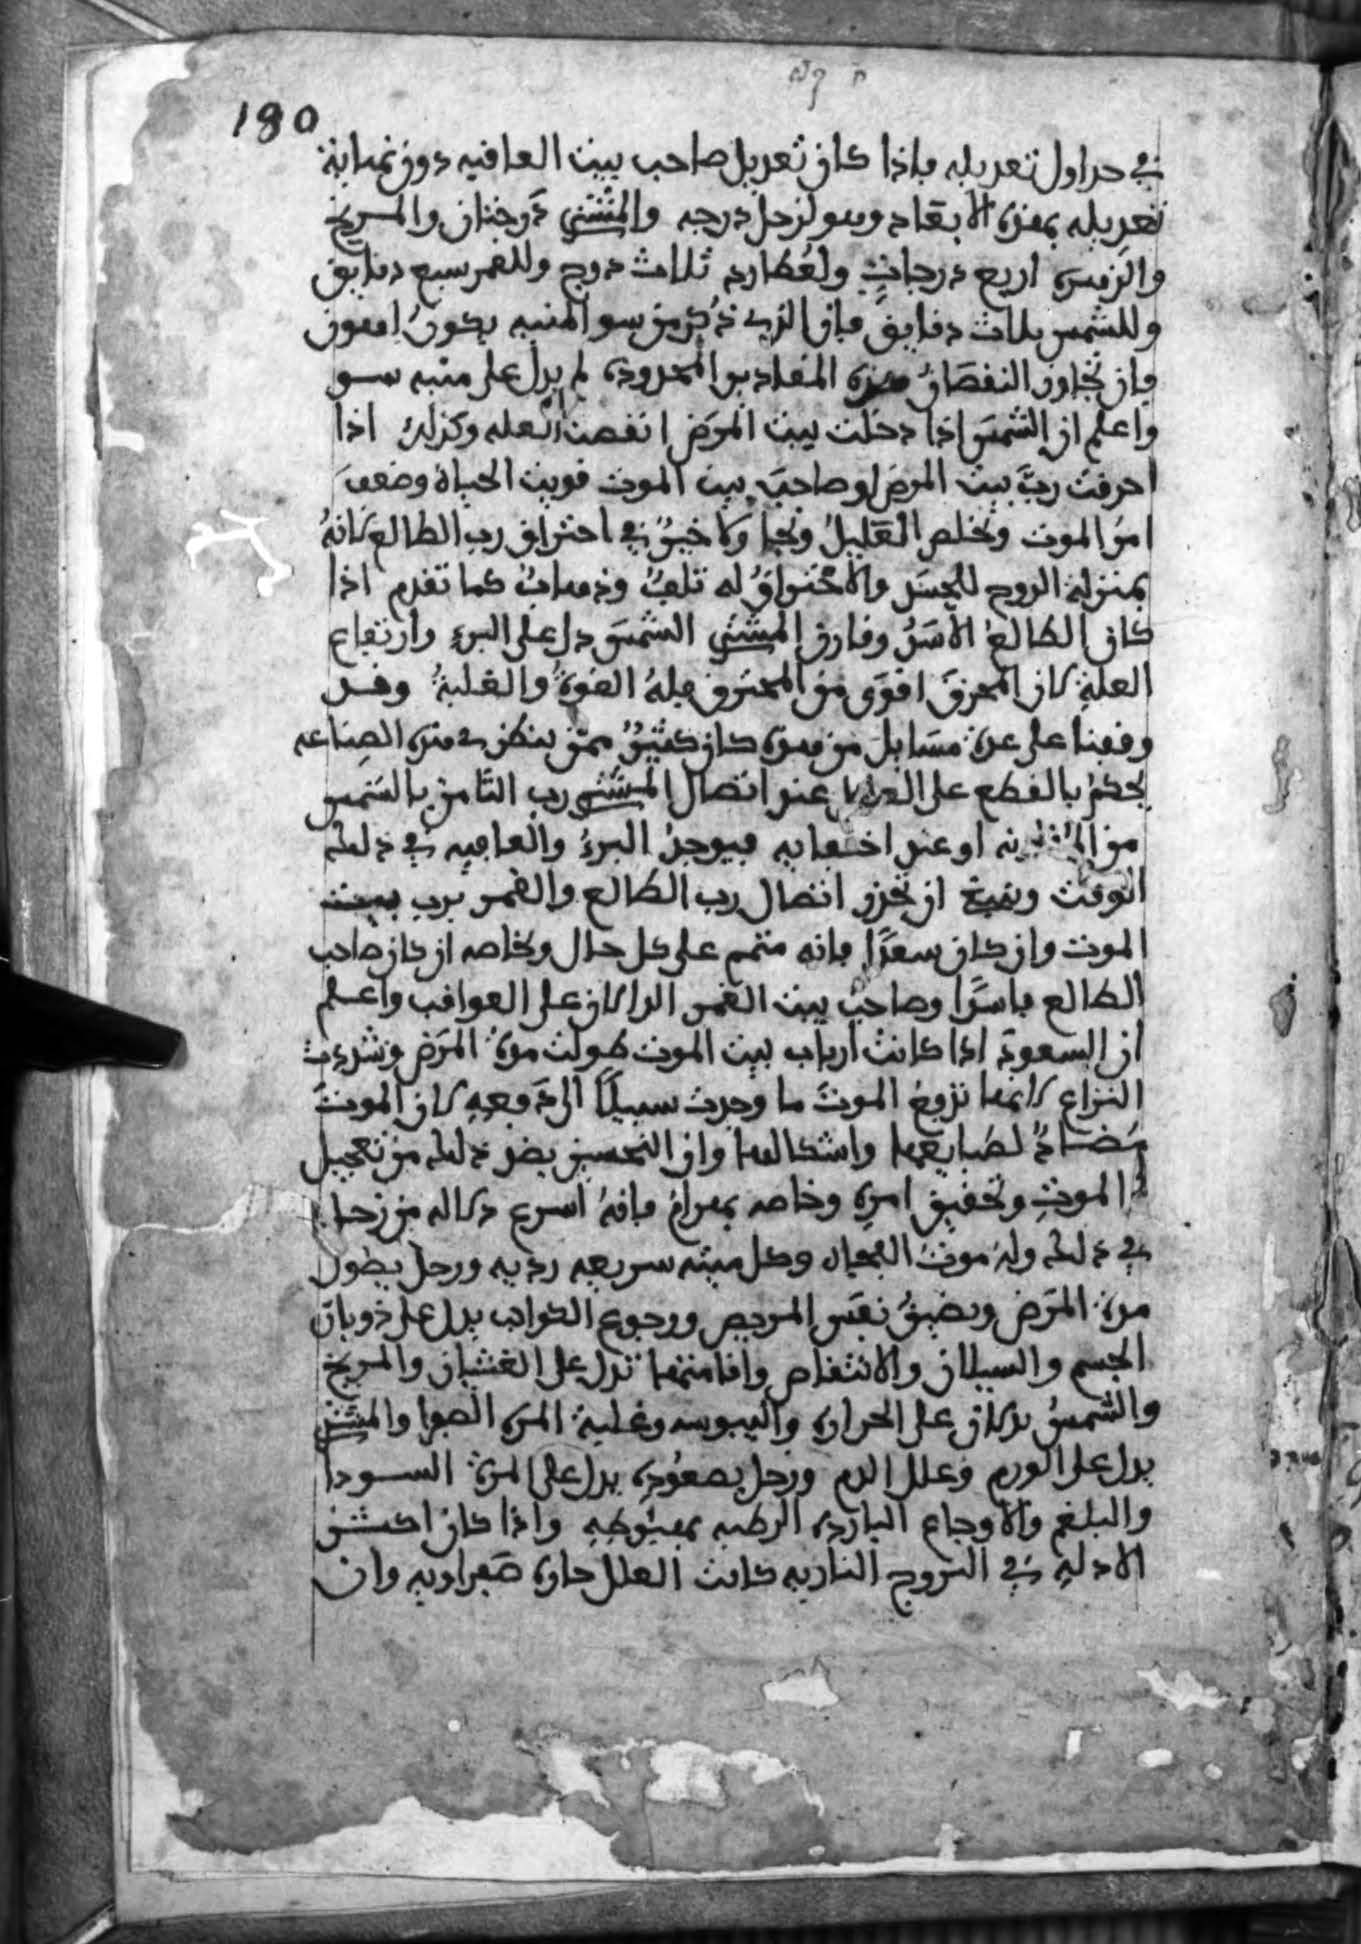 180
في جداول تعديله فإذا كان تعديل صاحب بيت العافيه دون نهاية
تعديله بهذه الابعاد وهو لزحل درجه والمشتري درجتان والمريخ
والزهرة اربع درجات ولعطارد ثلاث درج وللقمر سبع دقايق
وللشمس ثلاث دقايق فإن الذي ذكر من سو المنيه يكون اهون
وان تجاوز النقصان هذه المقادير المحدوده لم يدل على ميته سو
واعلم ان الشمس اذا دخلت بيت المرض انقصت العله وكذلك اذا
احرقت رب بيت المرض او صاحب بيت الموت قويت الحياة وضعف
امر الموت وتخلص العليل ونجا ولا خير في احتراق رب الطالع لانه
بمنزلة الروح للجسد والاحتراق له تلف وذهاب كما تقدم اذا
كان الطالع الاسد وفارق المشتري الشمس دل على البرء وارتفاع
العلة لان المحرق اقوى من المحترق فله القوة والغلبة وقد
وقفنا على عدة مسايل من هذه كان كثير ممن ينظر في هذه الصناعه
يحكم بالقطع على عند اتصال المشتري رب الثامن بالشمس
من او عند اختفايه فيوجد البرء والعافيه في ذلك
الوقت وينبغي ان تحذر اتصال رب الطالع والقمر برب بيت
الموت وان كان سعدا فإنه متمم على كل حال وبخاصه ان كان صاحب
الطالع فاسدا وصاحب بيت القمر الدالان على العواقب واعلم
ان السعود اذا كانت ارباب بيت الموت طولت مدة المرض وشددت
النزاع لانها تزوغ الموت ما وجدت سبيلا الى دفعه لان الموت
مضاد لطبايعها واشكالها وان النحسين بضد ذلك من تعجيل
الموت وتحقيق امره وخاصه بهرام فإنه اسرع دلاله من زحل
في ذلك وله موت الفجاه وكل ميته سريعه رديه وزحل يطول
مدة المرض ويضيق نفس المريض ورجوع الكواكب يدل على ذوبان
الجسم والسيلان والانتقاص واقامتها تدل على الغشيان والمريخ
والشمس يدلان على الحراره واليبوسه وغلبة المره الصفرا والمشتري
يدل على الورم وعلل الدم وزحل بصعوده يدل على المرة السودا
والبلغم والاوجاع البارده الرطبه بهبوطه واذا كان اكثر
الادله في البروج الناريه كانت العلل حاره صفراويه وان